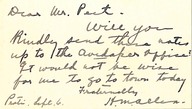 Dear Mr. Post.
Will you
Kindly send these notes
up to the office?
It would not be wise
for me to go to town today
Fraternally
Sept. 6.